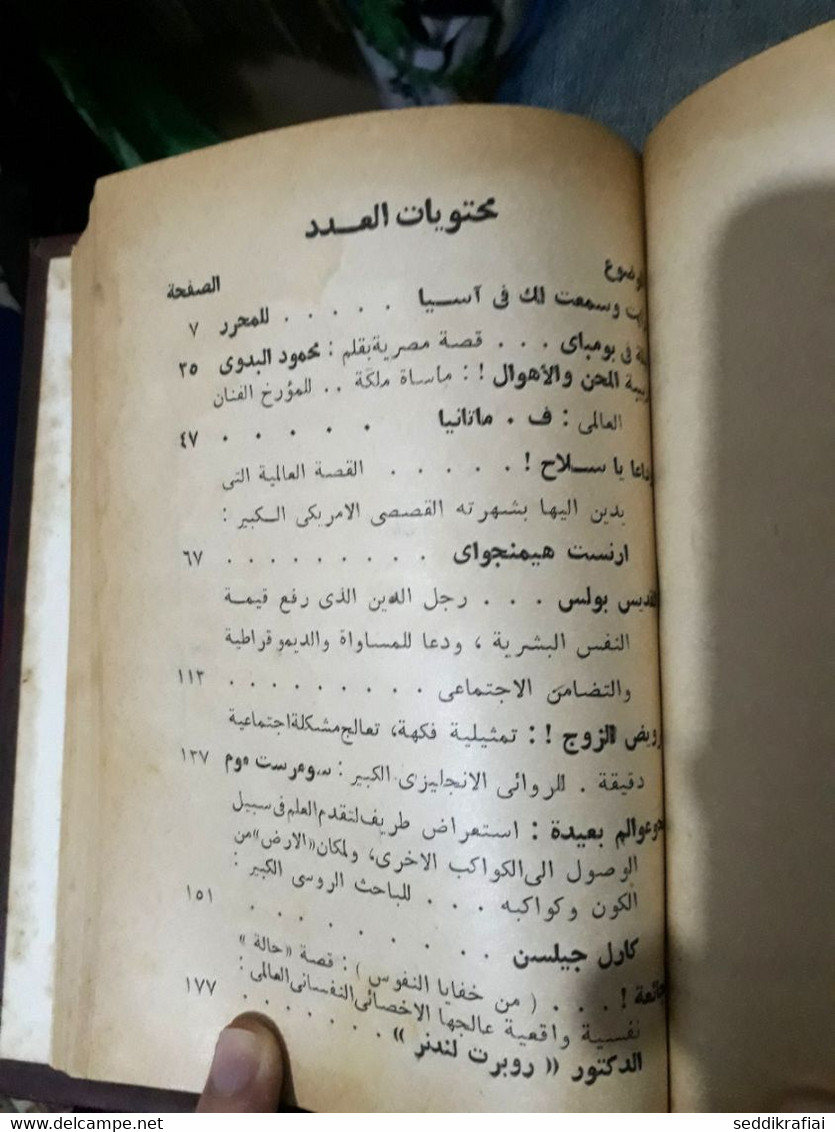 محتويات العدد
الصفحة
وسمعت لك فى آسيا . . . . . للمحرر ٧
فى بومباى . . . قصة مصرية بقلم : محمود البدوى ٣٥
المحن والأهوال ! : مأساة ملكة . . للمؤرخ الفنان
العالمى : ف . ماتانيا . . . . . ٤٧
يا سلاح ! . . . . . القصة العالمية التى
يدين اليها بشهرته القصصى الامريكى الكبير :
ارنست هيمنجواى . . . . . . . . . ٦٧
القديس بولس . . . رجل الدين الذى رفع قيمة
النفس البشرية ، ودعا للمساواة والديموقراطية
والتضامن الاجتماعى . . . . . . . . . ١١٣
الزوج ! : تمثيلية فكهة، تعالج مشكلة اجتماعية
دقيقة . للروائى الانجليزى الكبير : سومرست موم ١٣٧
عوالم بعيدة : استعراض طريف لتقدم العلم فى سبيل
الوصول الى الكواكب الاخرى، ولمكان «الارض» من
الكون وكواكبه . . . للباحث الروسى الكبير :
كارل جيلسن . . . . . . . ١٥١
! . . . ( من خفايا النفوس ) : قصة «حالة»
نفسية واقعية عالجها الاخصائى النفسانى العالمى :
الدكتور « روبرت لندنر » . . . . . . . ١٧٧
www.delcampe.net
seddikrafiai